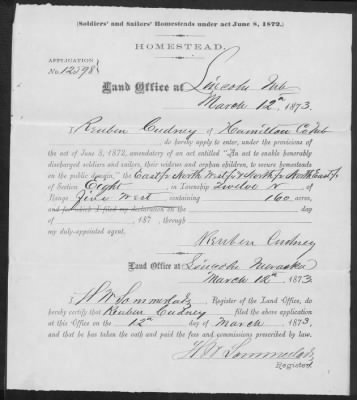 (Soldiers' and Sailors' Homesteads under act June 8, 1872.)
HOMESTEAD.
APPLICATION
No. 12598
Land Office at Lincoln Neb
March 12th 1873.
I Reuben Cudney of Hamilton Co Neb
do hereby apply to enter, under the provisions of
the act of June 8, 1872, amendatory of an act entitled "An act to enable honorably
discharged soldiers and sailors, their widows and orphan children, to secure homesteads
on the public domain," the East ½ North West ¼ & North ½ North East ¼
of Section Eight in Township Twelve N of
Range Five West containing 160 acres,
and for which I filed my declaration on the day
of , 187 , through
my duly-appointed agent.
Reuben Cudney
Land Office at Lincoln Nebraska
March 12th 1873
I H W Sommerlatz, Register of the Land Office, do
hereby certify that Reuben Cudney filed the above application
at this Office on the 12th day of March, 1873,
and that he has taken the oath and paid the fees and commissions prescribed by law.
H W Sommerlatz
Register.